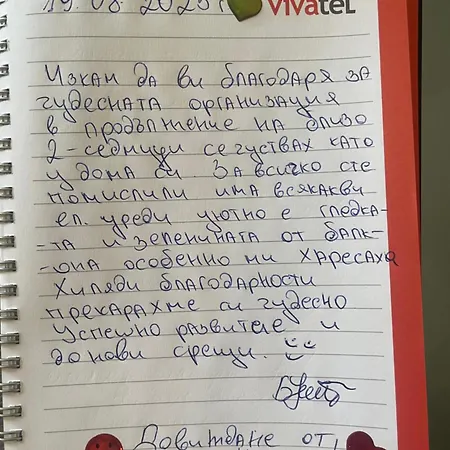 19.08.2025г
vivatel
Искам да ви благодаря за
чудесната организация
в продължение на близо
2-седмици се чуствах като
у дома си. За всичко сте
помислили има всякакви
ел. уреди уютно е гледка-
-та и зеленината от балк-
-она особенно ми харесаха
Хиляди благодарности
прекарахме си чудесно
Успешно развитие и
до нови срещи.
Довиждане от